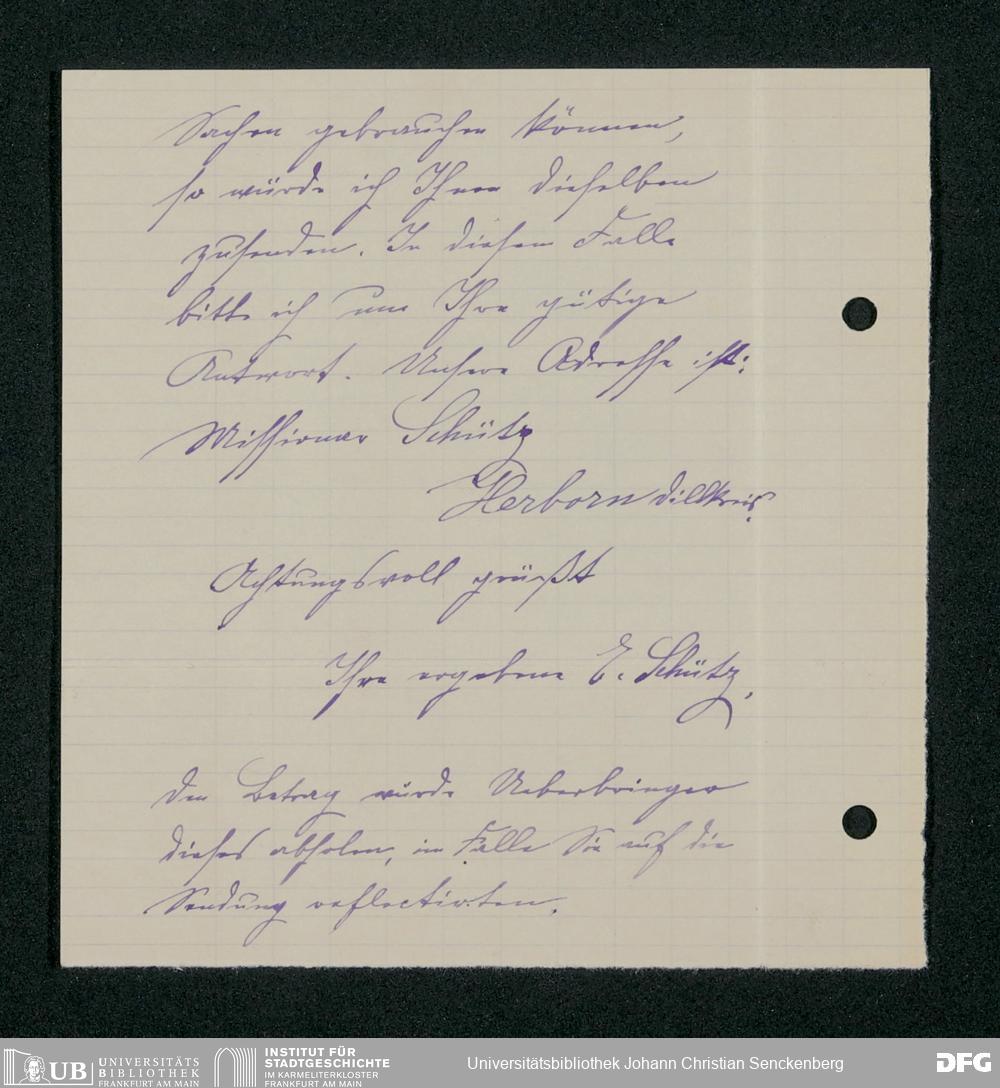 Sachen gebrauchen können,
so würde ich Ihnen dieselben
zusenden. In diesem Falle
bitte ich um Ihre gütige
Antwort. Unsere Adresse ist:
Missionar Schütz
Herborn Dillkreis.
Achtungsvoll grüßt
Ihre ergebene E. Schütz.
Den Betrag würde Ueberbringer
dieses abholen, im Falle Sie auf die
Sendung reflectirten.
UB UNIVERSITÄTS
BIBLIOTHEK
FRANKFURT AM MAIN
INSTITUT FÜR
STADTGESCHICHTE
IM KARMELITERKLOSTER
FRANKFURT AM MAIN
Universitätsbibliothek Johann Christian Senckenberg
DFG